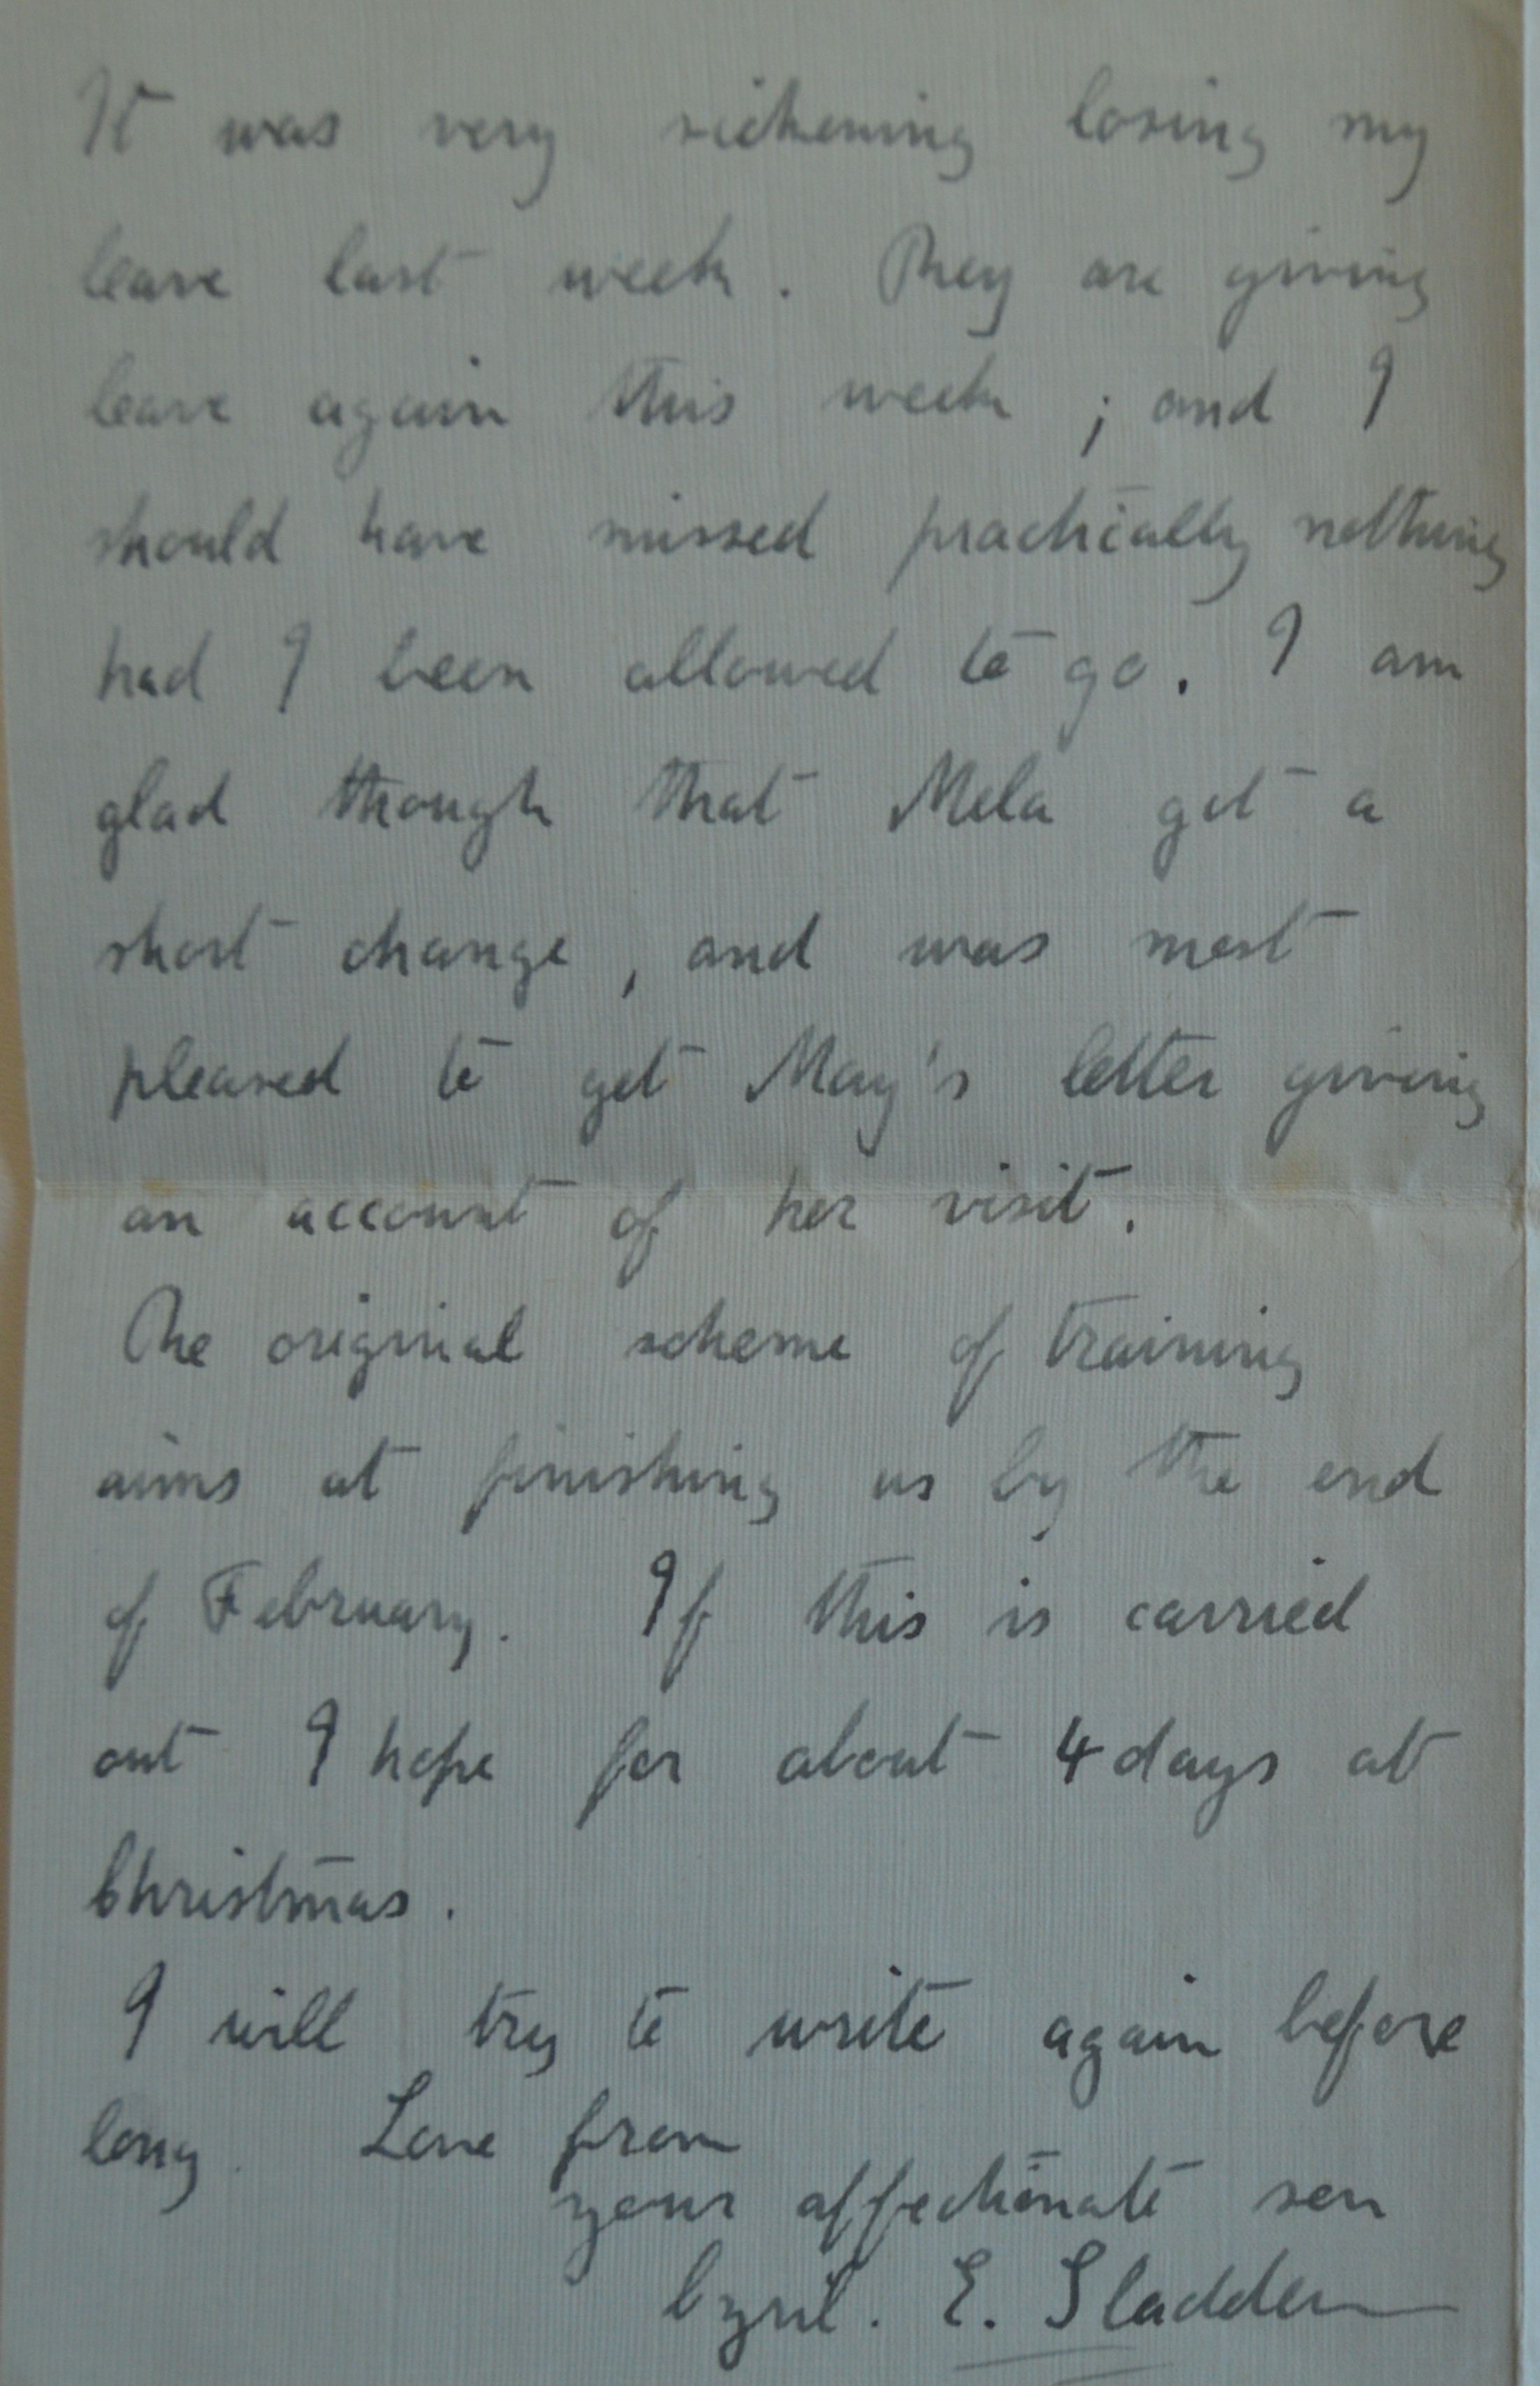 It was very sickening losing my
leave last week. They are giving
leave again this week ; and I
should have missed practically nothing
had I been allowed to go. I am
glad though that Mela got a
short change, and was most
pleased to get May's letter giving
an account of her visit.
The original scheme of training
aims at finishing us by the end
of February. If this is carried
out I hope for about 4 days at
Christmas.
I will try to write again before
long. Love from
your affectionate son
Cyril. E. Sladden